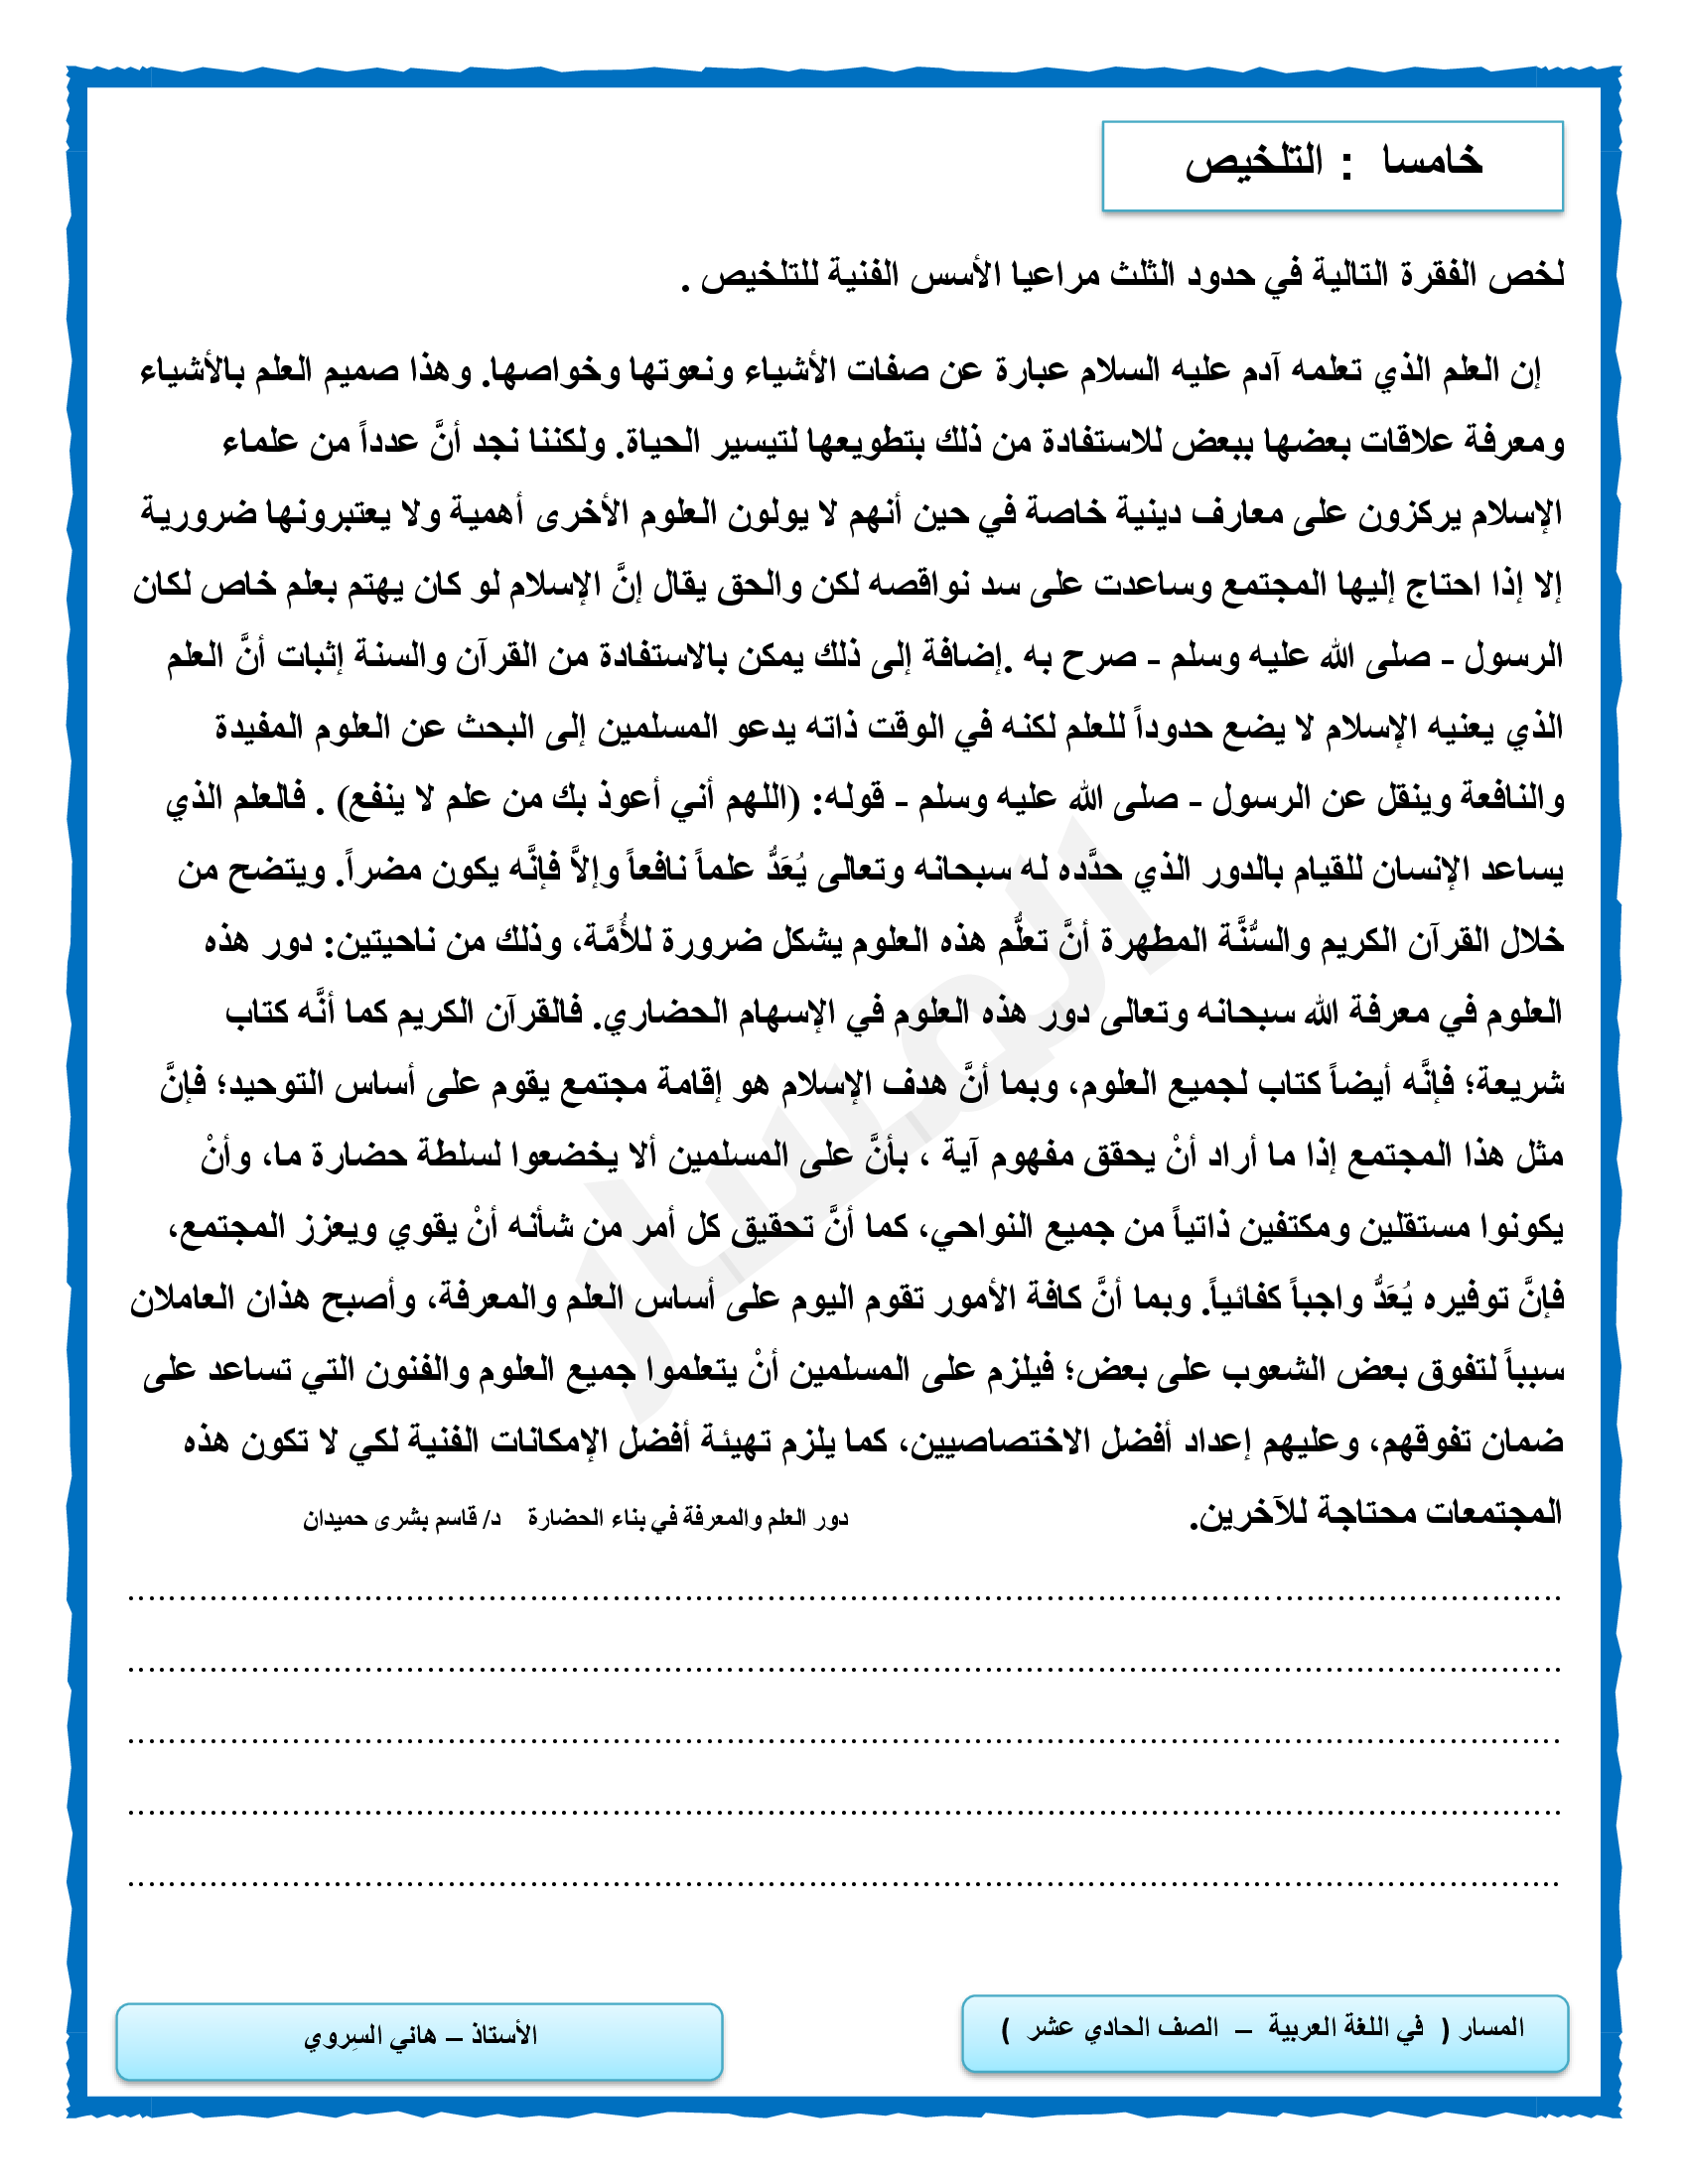 خامسا : التلخيص
لخص الفقرة التالية في حدود الثلث مراعيا الأسس الفنية للتلخيص .
إن العلم الذي تعلمه آدم عليه السلام عبارة عن صفات الأشياء ونعوتها وخواصها. وهذا صميم العلم بالأشياء
ومعرفة علاقات بعضها ببعض للاستفادة من ذلك بتطويعها لتيسير الحياة. ولكننا نجد أنَّ عدداً من علماء
الإسلام يركزون على معارف دينية خاصة في حين أنهم لا يولون العلوم الأخرى أهمية ولا يعتبرونها ضرورية
إلا إذا احتاج إليها المجتمع وساعدت على سد نواقصه لكن والحق يقال إنَّ الإسلام لو كان يهتم بعلم خاص لكان
الرسول - صلى الله عليه وسلم - صرح به .إضافة إلى ذلك يمكن بالاستفادة من القرآن والسنة إثبات أنَّ العلم
الذي يعنيه الإسلام لا يضع حدوداً للعلم لكنه في الوقت ذاته يدعو المسلمين إلى البحث عن العلوم المفيدة
والنافعة وينقل عن الرسول - صلى الله عليه وسلم - قوله: (اللهم أني أعوذ بك من علم لا ينفع) . فالعلم الذي
يساعد الإنسان للقيام بالدور الذي حدَّده له سبحانه وتعالى يُعَدُّ علماً نافعاً وإلاَّ فإنَّه يكون مضراً. ويتضح من
خلال القرآن الكريم والسُّنَّة المطهرة أنَّ تعلُّم هذه العلوم يشكل ضرورة للأُمَّة، وذلك من ناحيتين: دور هذه
العلوم في معرفة الله سبحانه وتعالى دور هذه العلوم في الإسهام الحضاري. فالقرآن الكريم كما أنَّه كتاب
شريعة؛ فإنَّه أيضاً كتاب لجميع العلوم، وبما أنَّ هدف الإسلام هو إقامة مجتمع يقوم على أساس التوحيد؛ فإنَّ
مثل هذا المجتمع إذا ما أراد أنْ يحقق مفهوم آية ، بأنَّ على المسلمين ألا يخضعوا لسلطة حضارة ما، وأنْ
يكونوا مستقلين ومكتفين ذاتياً من جميع النواحي، كما أنَّ تحقيق كل أمر من شأنه أنْ يقوي ويعزز المجتمع،
فإنَّ توفيره يُعَدُّ واجباً كفائياً. وبما أنَّ كافة الأمور تقوم اليوم على أساس العلم والمعرفة، وأصبح هذان العاملان
سبباً لتفوق بعض الشعوب على بعض؛ فيلزم على المسلمين أنْ يتعلموا جميع العلوم والفنون التي تساعد على
ضمان تفوقهم، وعليهم إعداد أفضل الاختصاصيين، كما يلزم تهيئة أفضل الإمكانات الفنية لكي لا تكون هذه
المجتمعات محتاجة للآخرين. دور العلم والمعرفة في بناء الحضارة د/ قاسم بشرى حميدان
المسار
المسار ( في اللغة العربية – الصف الحادي عشر )
الأستاذ – هاني السِروي